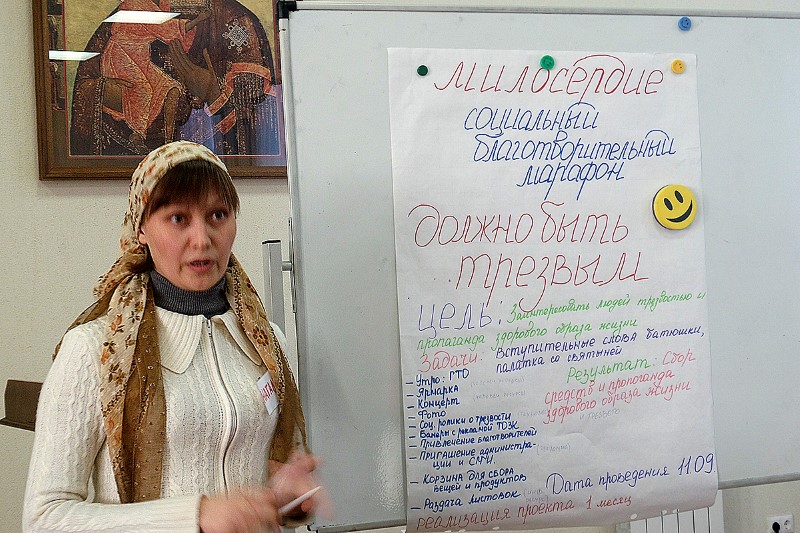 милосердие
социальный
благотворительный
марафон
должно быть
трезвым
Цель: Заинтересовать людей трезвостью и
пропаганда здорового образа жизни
Задачи: Вступительные слова батюшки,
палатка со святыней
– Утро: ГТО
– Ярмарка
– Концерт
– Фото
– Соц. ролики о трезвости
– Банеры с рекламой ТОЗК
– Привлечение благотворителей
– Приглашение администра-
ции и СМИ.
– Корзина для сбора
вещей и продуктов
– Раздача листовок
Результат: Сбор
средств и пропоганда
здорового образа жизни
Дата проведения 11.09.
реализация проекта 1 месяц